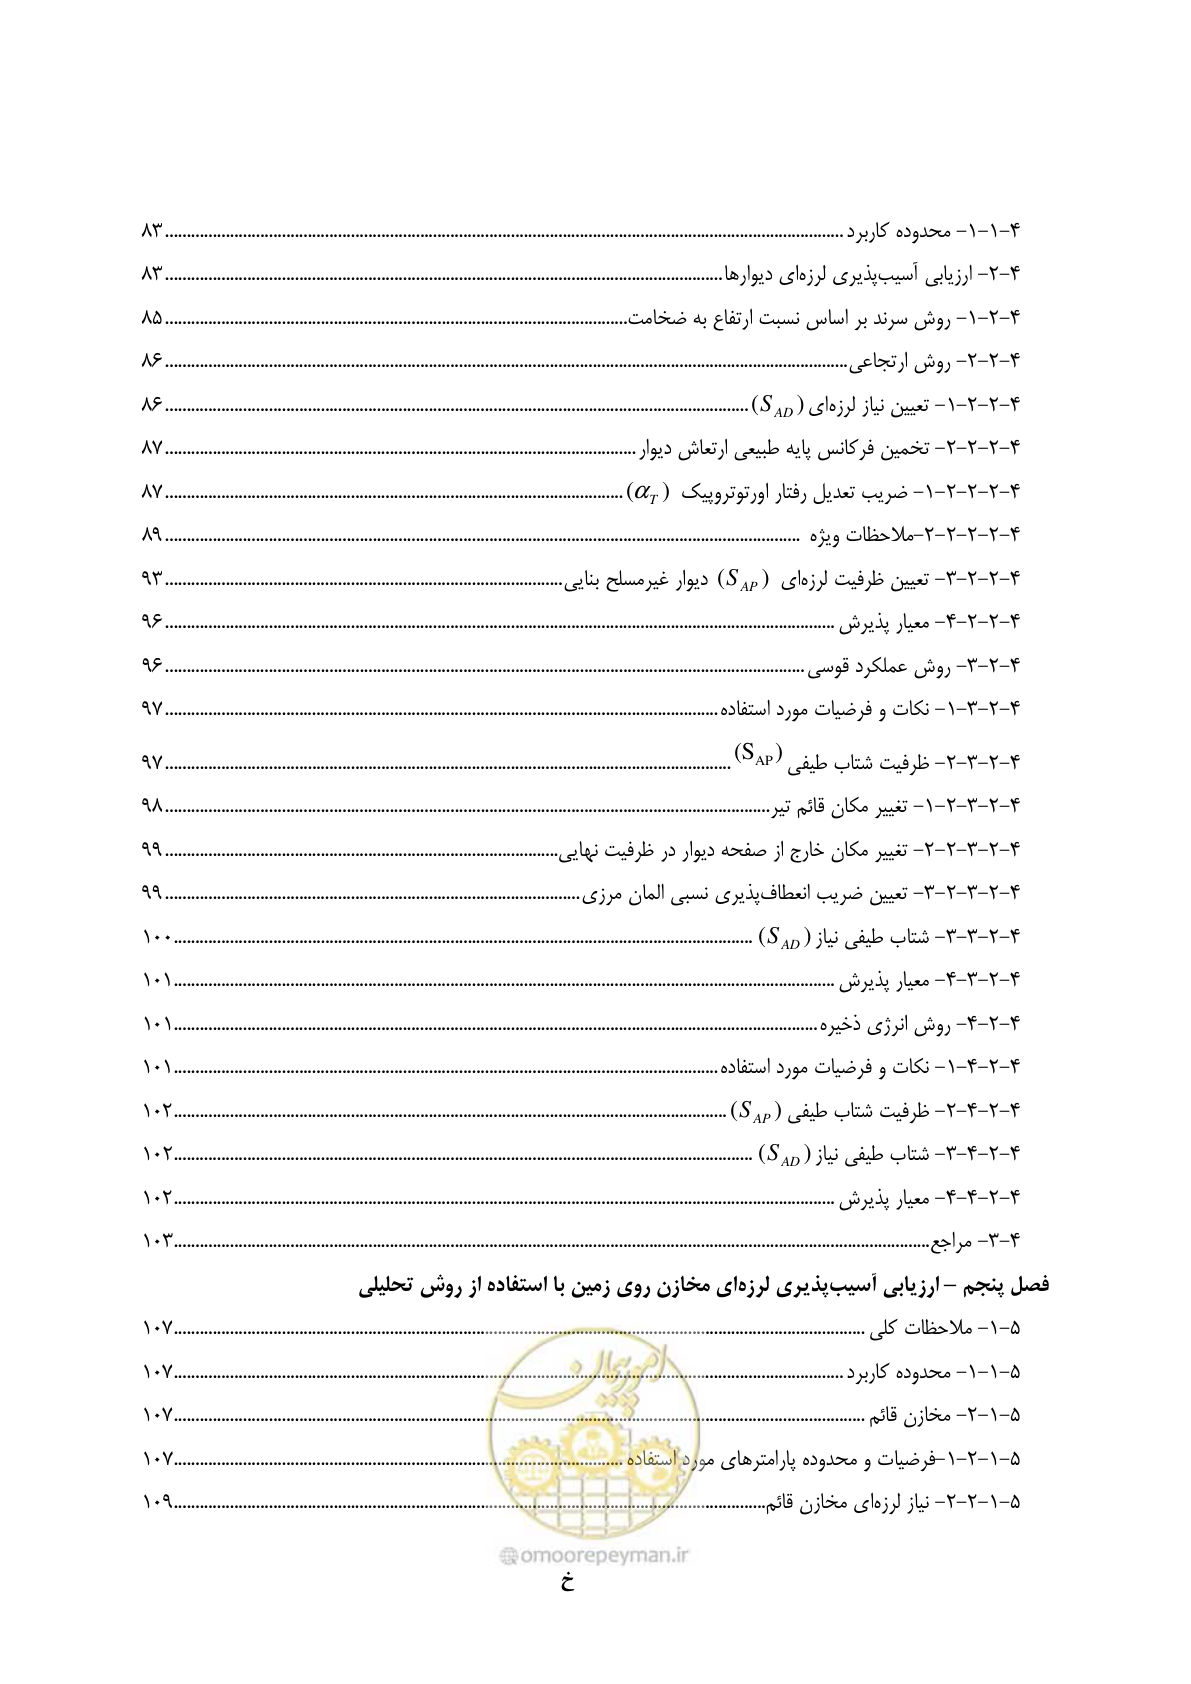 ۴-۱-۱- محدوده کاربرد ........ ۸۳
۴-۲- ارزیابی آسیب‌پذیری لرزه‌ای دیوارها ........ ۸۳
۴-۲-۱- روش سرند بر اساس نسبت ارتفاع به ضخامت ........ ۸۵
۴-۲-۲- روش ارتجاعی ........ ۸۶
۴-۲-۲-۱- تعیین نیاز لرزه‌ای (S_AD) ........ ۸۶
۴-۲-۲-۲- تخمین فرکانس پایه طبیعی ارتعاش دیوار ........ ۸۷
۴-۲-۲-۲-۱- ضریب تعدیل رفتار اورتوتروپیک (α_T) ........ ۸۷
۴-۲-۲-۲-۲-ملاحظات ویژه ........ ۸۹
۴-۲-۲-۳- تعیین ظرفیت لرزه‌ای (S_AP) دیوار غیرمسلح بنایی ........ ۹۳
۴-۲-۲-۴- معیار پذیرش ........ ۹۶
۴-۲-۳- روش عملکرد قوسی ........ ۹۶
۴-۲-۳-۱- نکات و فرضیات مورد استفاده ........ ۹۷
۴-۲-۳-۲- ظرفیت شتاب طیفی (S_AP) ........ ۹۷
۴-۲-۳-۲-۱- تغییر مکان قائم تیر ........ ۹۸
۴-۲-۳-۲-۲- تغییر مکان خارج از صفحه دیوار در ظرفیت نهایی ........ ۹۹
۴-۲-۳-۲-۳- تعیین ضریب انعطاف‌پذیری نسبی المان مرزی ........ ۹۹
۴-۲-۳-۳- شتاب طیفی نیاز (S_AD) ........ ۱۰۰
۴-۲-۳-۴- معیار پذیرش ........ ۱۰۱
۴-۲-۴- روش انرژی ذخیره ........ ۱۰۱
۴-۲-۴-۱- نکات و فرضیات مورد استفاده ........ ۱۰۱
۴-۲-۴-۲- ظرفیت شتاب طیفی (S_AP) ........ ۱۰۲
۴-۲-۴-۳- شتاب طیفی نیاز (S_AD) ........ ۱۰۲
۴-۲-۴-۴- معیار پذیرش ........ ۱۰۲
۴-۳- مراجع ........ ۱۰۳
فصل پنجم – ارزیابی آسیب‌پذیری لرزه‌ای مخازن روی زمین با استفاده از روش تحلیلی
۵-۱- ملاحظات کلی ........ ۱۰۷
۵-۱-۱- محدوده کاربرد ........ ۱۰۷
۵-۱-۲- مخازن قائم ........ ۱۰۷
۵-۱-۲-۱-فرضیات و محدوده پارامترهای مورد استفاده ........ ۱۰۷
۵-۱-۲-۲- نیاز لرزه‌ای مخازن قائم ........ ۱۰۹
امور پیمان
@omoorepeyman.ir
خ